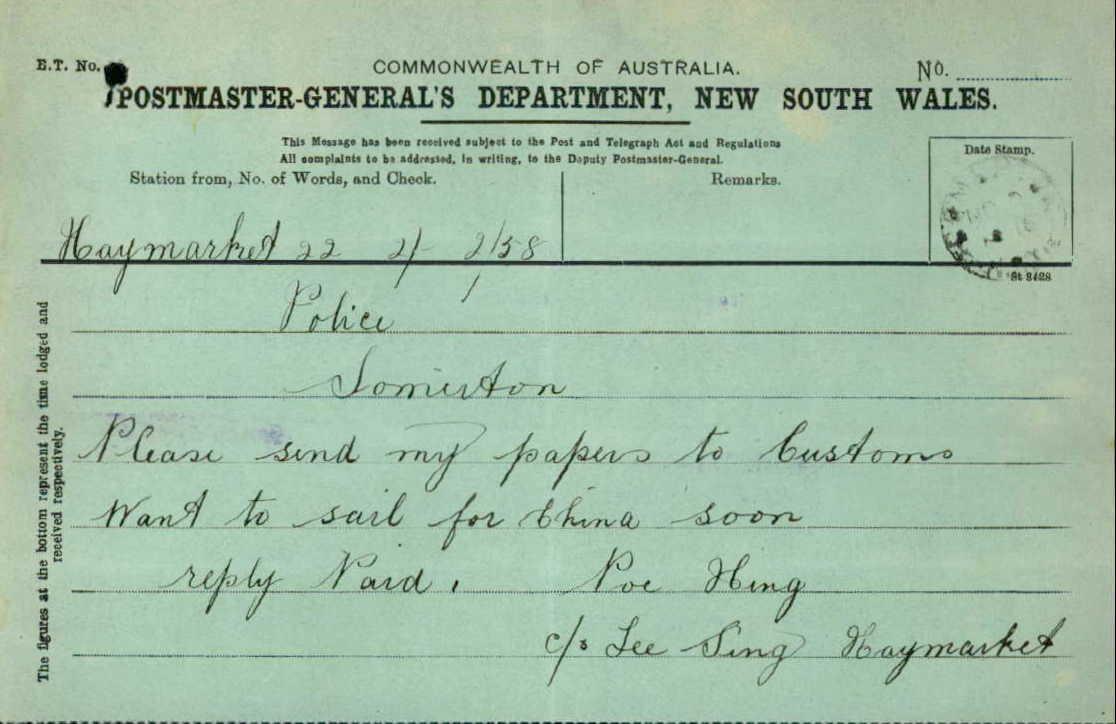 E.T. No.
COMMONWEALTH OF AUSTRALIA.
No.
POSTMASTER-GENERAL'S DEPARTMENT, NEW SOUTH WALES.
This Message has been received subject to the Post and Telegraph Act and Regulations
All complaints to be addressed, in writing, to the Deputy Postmaster-General.
Station from, No. of Words, and Check.
Remarks.
Date Stamp.
Haymarket 22 2/- 2/58
St 8428
Police
Somerton
Please send my papers to Customs
Want to sail for China soon
reply Paid. Poe Hing
c/s Lee Sing Haymarket
The figures at the bottom represent the time lodged and
received respectively.